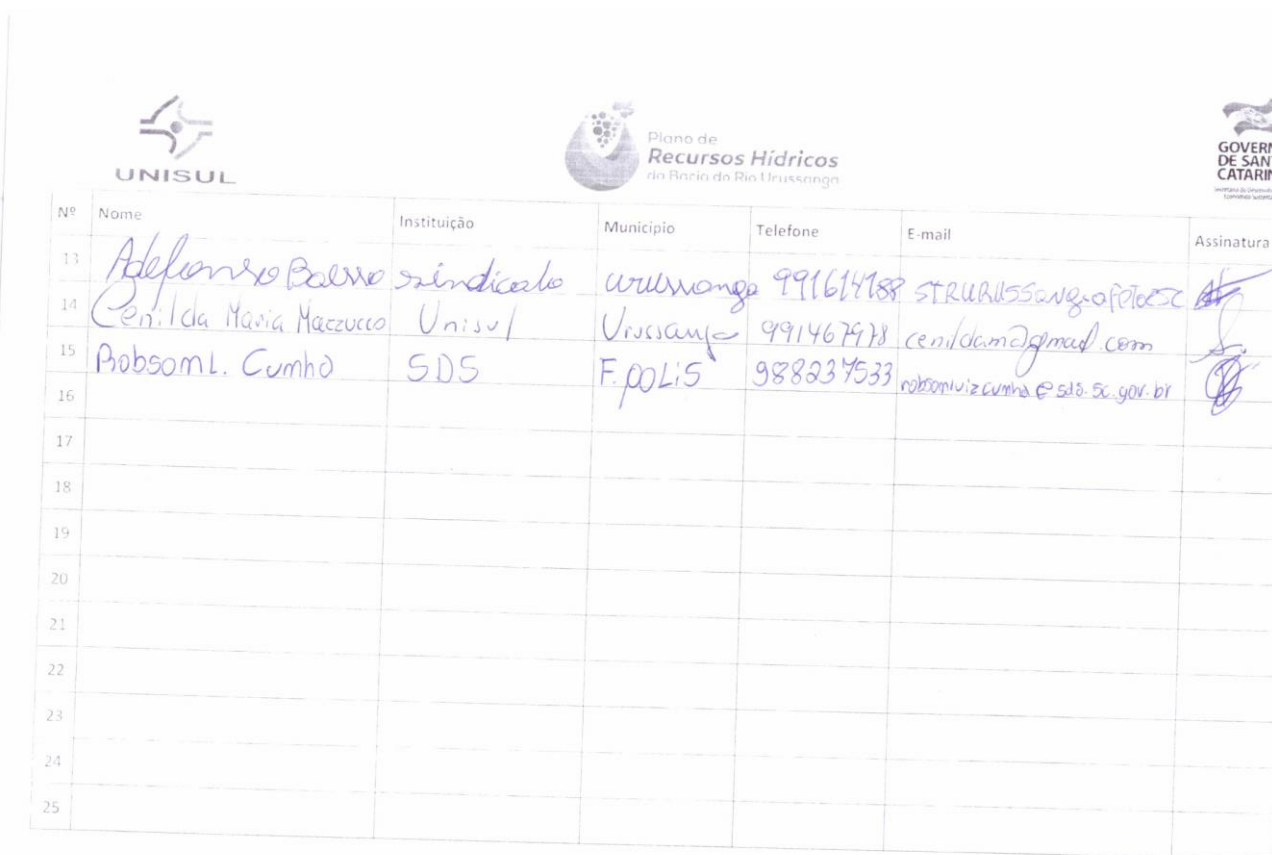 UNISUL
Plano de
Recursos Hídricos
da Bacia do Rio Urussanga
GOVERN
DE SAN
CATARIN
Nº Nome Instituição Município Telefone E-mail Assinatura
13 Adefonso Balsso sindicato urussanga
14 Cenilda Maria Mazzucco Unisul Urussanga cenildam@gmail.com
15 Robsom L. Cunha SDS F.POLIS 988237533 robsomluizcunha@sds.sc.gov.br
16
17
18
19
20
21
22
23
24
25